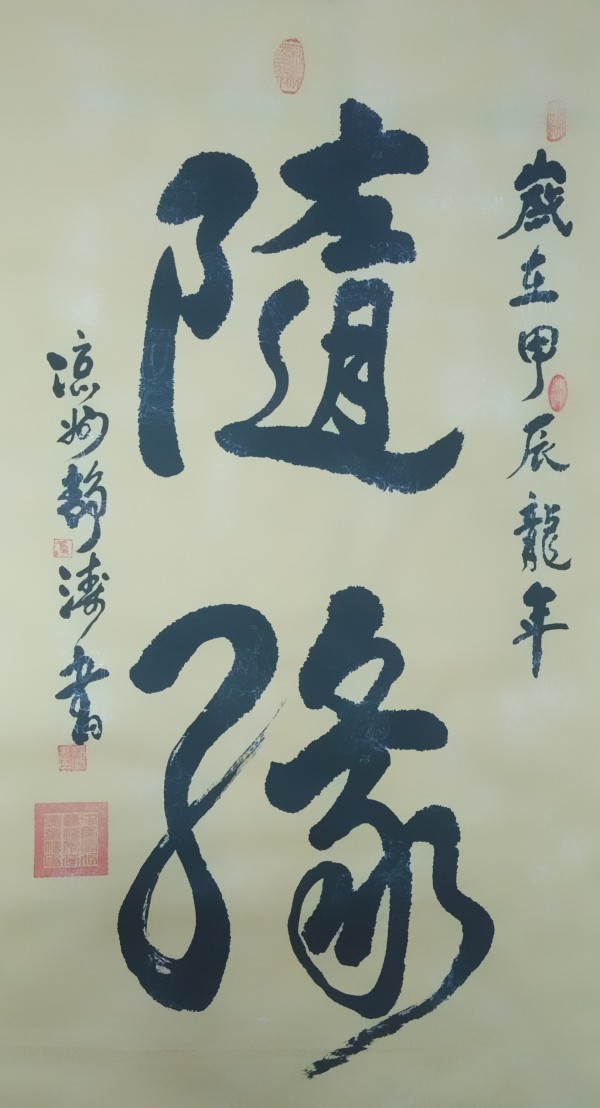 歲在甲辰龍年
隨緣
涼州靜濤書